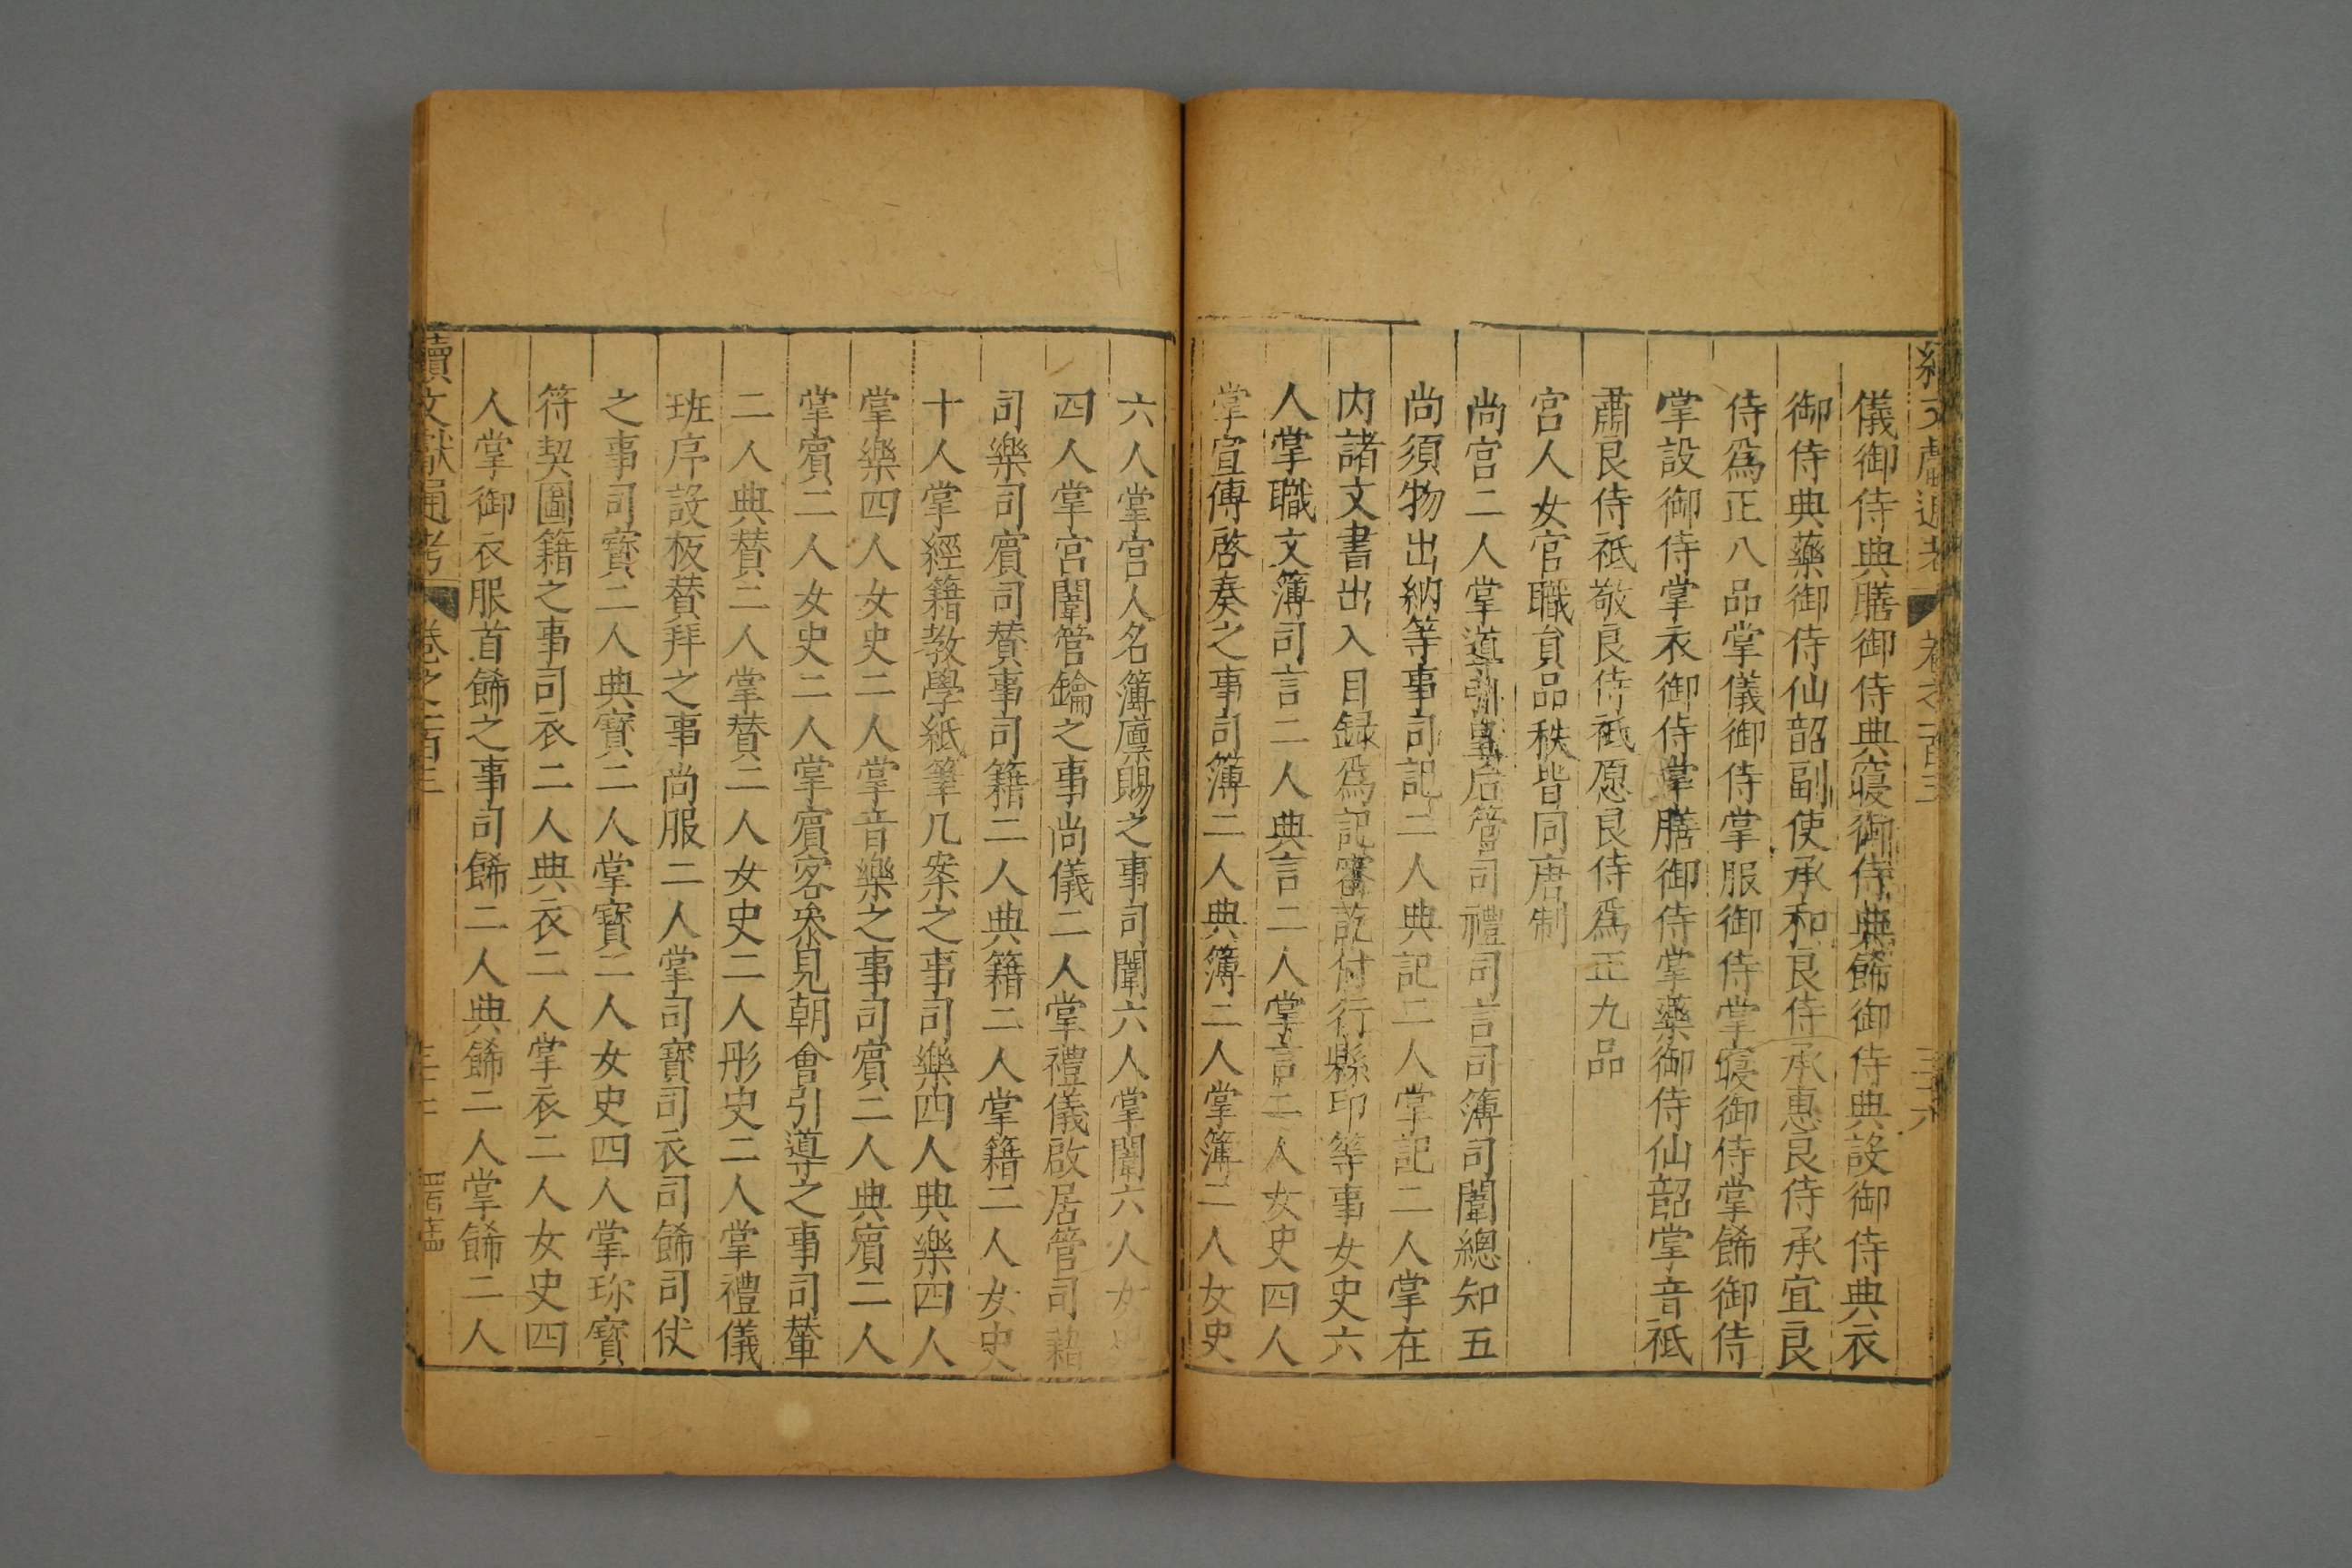 儀御侍典膳御侍典寢御侍典餙御侍典設御侍典衣
御侍典藥御侍仙韶副使承和良侍承惠良侍承宜良
侍爲正八品掌儀御侍掌服御侍掌寢御侍掌餙御侍
掌設御侍掌衣御侍掌膳御侍掌藥御侍仙韶掌音祗
肅良侍祗敬良侍祗愿良侍爲正九品
宮人女官職員品秩皆同唐制
尚宮二人掌導引皇后管司禮司言司簿司闈總知五
尚須物出納等事司記二人典記二人掌記二人掌在
内諸文書出入目録爲記審訖付行縣印等事女史六
人掌職文簿司言二人典言二人掌言二人女史四人
掌宣傳啓奏之事司簿二人典簿二人掌簿二人女史
六人掌宮人名簿廩賜之事司闈六人掌闈六人女史
四人掌宮闈管鑰之事尚儀二人掌禮儀啟居管司籍
司樂司賔司賛事司籍二人典籍二人掌籍二人女史
十人掌經籍教學紙筆几案之事司樂四人典樂四人
掌樂四人女史二人掌音樂之事司賔二人典賔二人
掌賔二人女史二人掌賔客叅見朝會引導之事司輦
二人典賛二人掌賛二人女史二人彤史二人掌禮儀
班序設板賛拜之事尚服二人掌司寳司衣司餙司仗
之事司寳二人典寳二人掌寳二人女史四人掌珎寳
符契圖籍之事司衣二人典衣二人掌衣二人女史四
人掌御衣服首餙之事司餙二人典餙二人掌餙二人
續文獻通考 卷之一百三